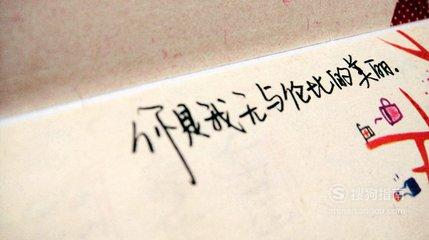 你是我无与伦比的美丽.
搜狗指南
zhinan.sogou.com